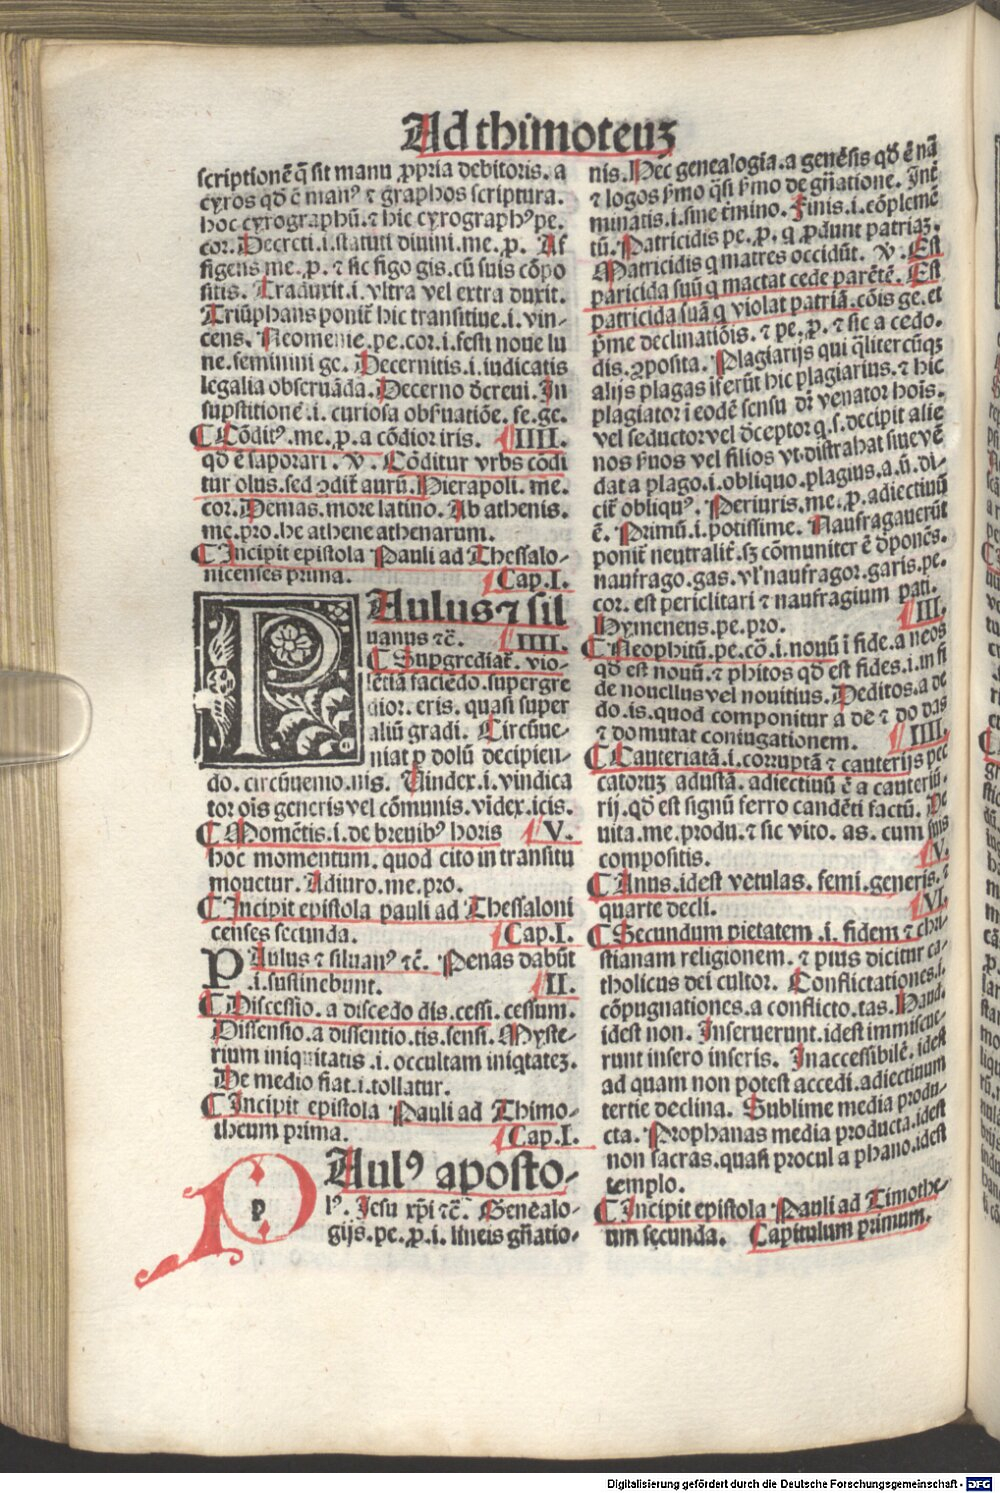 Ad thimoteuꝫ
scriptionē q̄ sit manu ꝓpria debitoris. a
cyros qd̄ ē manꝰ ⁊ graphos scriptura.
hoc cyrographū.⁊ hic cyrographꝰ pe.
cor. Decreti.i.statuti diuini.me.p. Af
figens me.p. ⁊ sic figo gis.cū suis cōpo
sitis. Traduxit.i.vltra vel extra duxit.
Triūphans ponit̄ hic transitiue.i.vin-
cens. Neomenie.pe.cor.i.festi noue lu
ne.feminini ge. Decernitis.i.iudicatis
legalia obseruāda. Decerno dcreui. In
supstitionē.i. curiosa obs̄uatiōe. se.ge.
¶ Cōditꝰ.me.p.a cōdior iris. IIII.
qd̄ ē saporari. v. Cōditur vrbs cōdi
tur olus.sed ꝯdit̄ aurū. Hierapoli. me.
cor. Demas.more latino. Ab athenis.
me.pro.he athene athenarum.
¶ Incipit epistola Pauli ad Thessalo-
nicenses prima. Cap.I.
PAulus ⁊ sil
uanus ⁊c̄. IIII.
¶ Supgrediat̄. vio-
lētiā faciēdo.supergre
dior.eris. quasi super
aliū gradi. Circūue-
niat p dolū decipien-
do. circūuenio.nis. Vindex.i.vindica
tor oīs generis vel cōmunis. videx.icis.
¶ Momētis.i.de breuibꝰ horis V.
hoc momentum. quod cito in transitu
mouetur. Adiuro.me.pro.
¶ Incipit epistola pauli ad Thessaloni
censes secunda. Cap.I.
PAulus ⁊ siluanꝰ ⁊c̄. Penas dabūt
.i.sustinebunt. II.
¶ Discessio.a discedo dis.cessi.cessum.
Dissensio.a dissentio.tis.sensi. Myste-
rium iniquitatis.i.occultam iniqtateꝫ.
De medio fiat.i.tollatur.
¶ Incipit epistola Pauli ad Thimo-
theum prima. Cap.I.
PAulꝰ aposto-
lꝰ. Jesu xp̄i ⁊c̄. Genealo-
gijs.pe.p.i. lineis gn̄atio-
nis. Hec genealogia.a genesis qd̄ ē nā
⁊ logos s̄mo q̄si s̄mo de gn̄atione. Int̄
minatis.i.sine t̄mino. Finis.i.cōplemē
tū. Patricidis pe.p. q ꝓdunt patriaꝫ.
Matricidis q matres occidūt. v. Est
paricida suū q mactat cede parētē. Est
patricida suā q violat patriā.cōis ge.et
p̄me declinatiōis. ⁊ pe.p. ⁊ sic a cedo.
dis.ꝯposita. Plagiarijs qui q̄litercūqꝫ
alijs plagas iferūt hic plagiarius.⁊ hic
plagiator i eodē sensu dr̄ venator hoīs.
vel seductor vel dceptor q.s.decipit alie
nos s̄uos vel filios vt.distrahat siue vē
dat a plago.i.obliquo.plagius.a.ū.di-
cit̄ obliquꝰ. Periuris.me.p.adiectiuū
ē. Primū.i.potissime. Naufragauerūt
ponit̄ neutralit̄.sꝫ cōmuniter ē dponēs.
naufrago.gas. vl' naufragor.garis.pe.
cor. est periclitari ⁊ naufragium pati.
Hymeneus.pe.pro. III.
¶ Neophitū.pe.cō.i.nouū ī fide.a neos
qd̄ est nouū.⁊ phitos qd̄ est fides.i.in fi
de nouellus vel nouitius. Deditos.a de
do.is.quod componitur a de ⁊ do das
⁊ do mutat coniugationem. IIII.
¶ Cauteriatā.i.corruptā ⁊ cauterijs pec
catoruꝫ adustā. adiectiuū ē a cauteriū.
rij.qd̄ est signū ferro candēti factū. De
uita.me.produ.⁊ sic vito. as. cum suis
compositis. V.
¶ Anus.idest vetulas. femi.generis.⁊
quarte decli. VI.
¶ Secundum pietatem.i. fidem ⁊ chri
stianam religionem. ⁊ pius dicitur ca-
tholicus dei cultor. Conflictationes.i.
cōpugnationes.a conflicto.tas. Haud.
idest non. Inseruerunt.idest immiscue-
runt insero inseris. Inaccessibilē.idest
ad quam non potest accedi.adiectiuum
tertie declina. Sublime media produ-
cta. Prophanas media producta.idest
non sacras.quasi procul a phano.idest
templo.
¶ Incipit epistola Pauli ad Timothe-
um secunda. Capitulum primum.
Digitalisierung gefördert durch die Deutsche Forschungsgemeinschaft - DFG